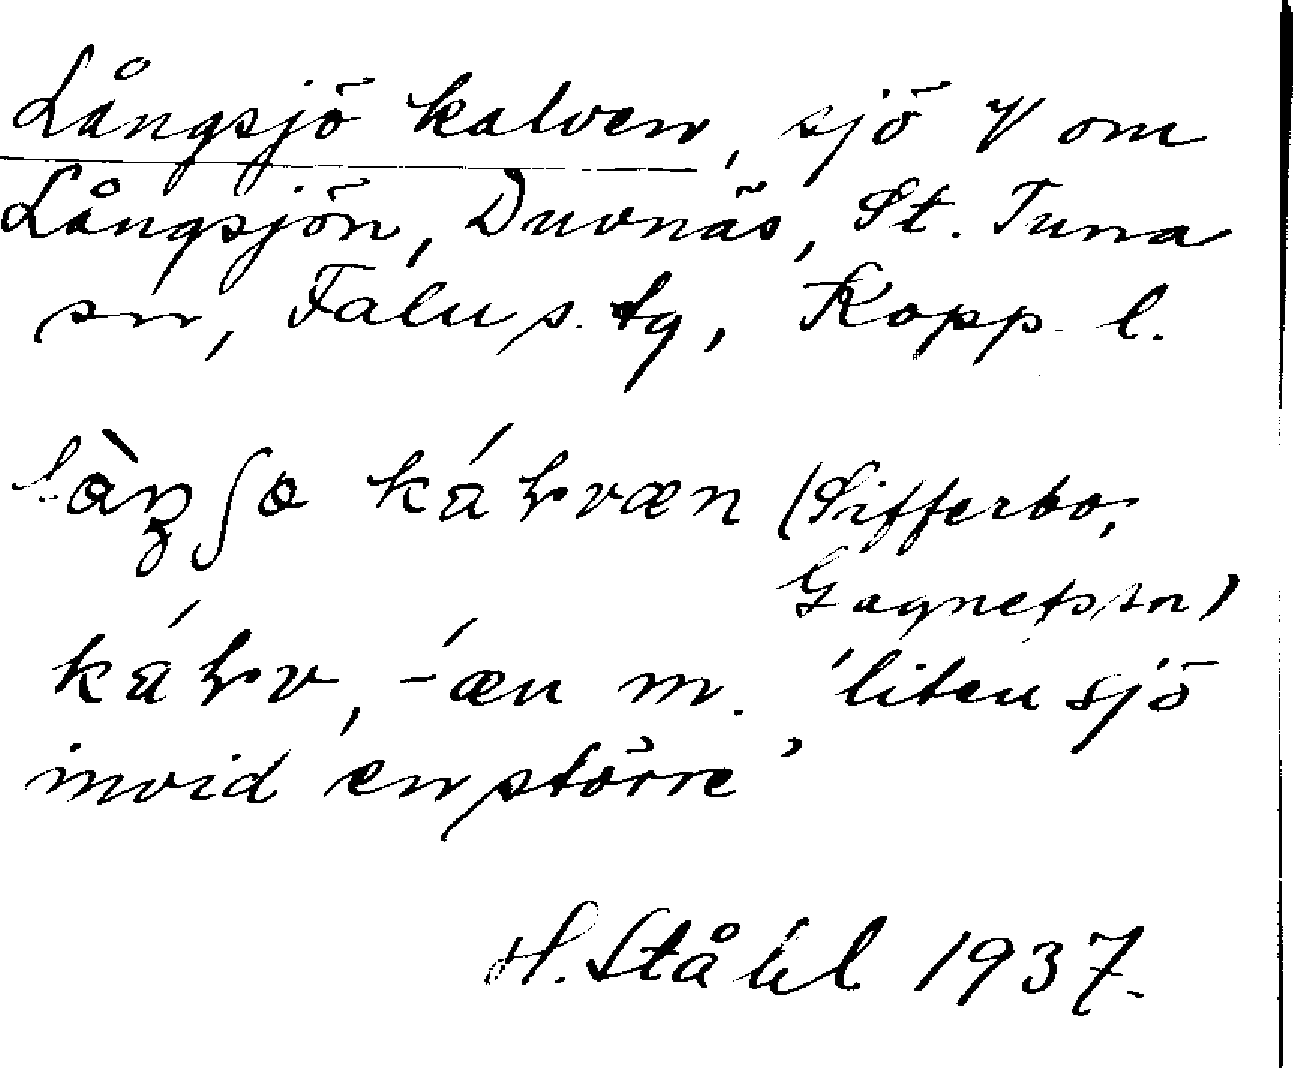 Långsjö kalven, sjö V om
Långsjön, Duvnäs, St. Tuna
sn, Falu s. tg, Kopp. l.
(Sifferbo,
Gagnefs sn)
-æn m. 'liten sjö
invid en större'
H. Ståhl 1937.